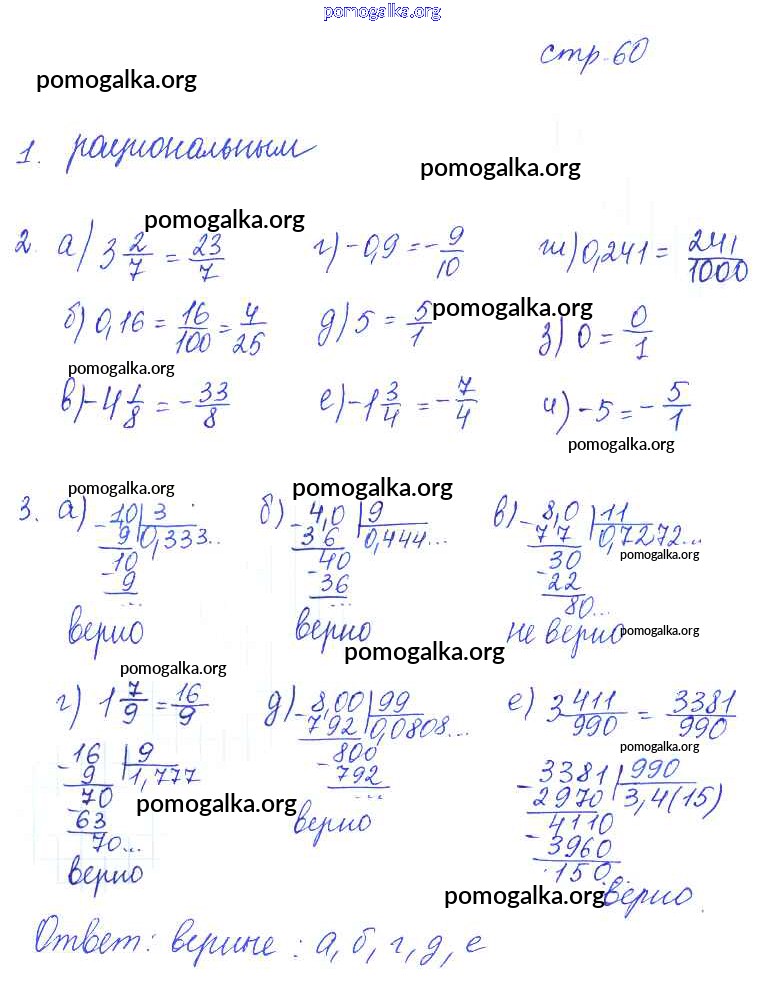 pomogalka.org
стр. 60
pomogalka.org
1. рациональным
pomogalka.org
pomogalka.org
2. а) 3 2/7 = 23/7 г) -0,9 = -9/10 ж) 0,241 = 241/1000
б) 0,16 = 16/100 = 4/25 д) 5 = 5/1 pomogalka.org з) 0 = 0/1
pomogalka.org
в) -4 1/8 = -33/8 е) -1 3/4 = -7/4 и) -5 = -5/1
pomogalka.org
pomogalka.org pomogalka.org
3. а) 10 | 3 б) 4,0 | 9 в) 8,0 | 11
- 9 0,333.. - 36 0,444... - 77 0,7272...
10 40 30 pomogalka.org
- 9 - 36 - 22
... ... 80...
верно верно не верно pomogalka.org
pomogalka.org pomogalka.org
г) 1 7/9 = 16/9 д) 8,00 | 99 е) 3 411/990 = 3381/990
- 792 0,0808...
pomogalka.org
- 16 | 9 800 3381 | 990
9 1,777 - 792 - 2970 3,4(15)
70 ... 4110
- 63 pomogalka.org верно - 3960
70... 150..
верно pomogalka.org верно.
Ответ: верине: а, б, г, д, е